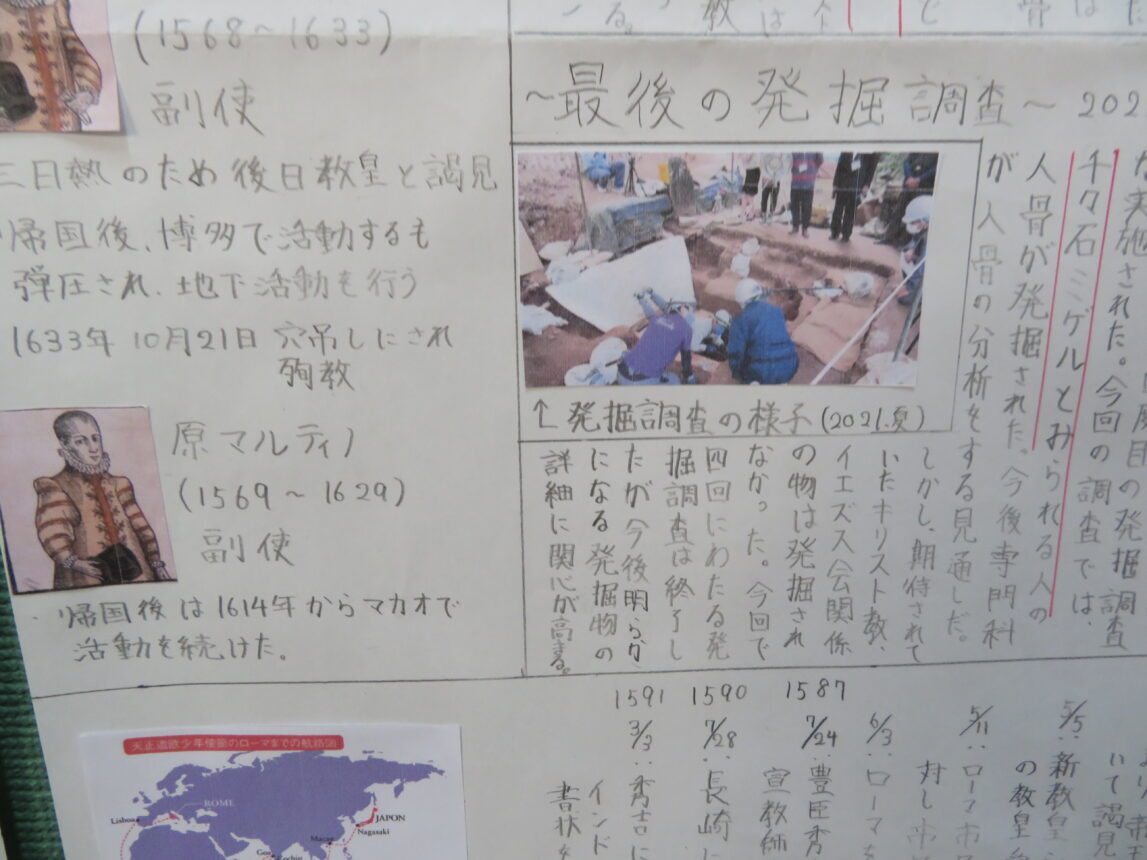 (1568～1633)
副使
三日熱のため後日教皇と謁見
帰国後、博多で活動するも
弾圧され、地下活動を行う
1633年10月21日 穴吊しにされ
殉教
原マルティノ
(1569～1629)
副使
帰国後は1614年からマカオで
活動を続けた。
～最後の発掘調査～ 202
が実施された。今回の調査では、
千々石ミゲルとみられる人の
人骨が発掘された。今後専門科
が人骨の分析をする見通しだ。
↑発掘調査の様子(2021.夏)
しかし、期待されて
いたキリスト教、
イエズス会関係
の物は発掘され
なかった。今回で
四回にわたる発
掘調査は終了し
たが今後明らか
になる発掘物の
詳細に関心が高まる。
天正遣欧少年使節のローマまでの航路図
ROME
Lisboa
JAPON
Nagasaki
Macao
Goa
Cochin
いて謁見
5/5：新教皇
の教皇
5/11：ローマ市
対し市
6/3：ローマを
1587
7/24：豊臣秀
宣教師
1590
7/28：長崎に
1591
3/3：秀吉に
インド
書状を